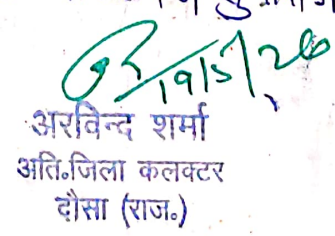 19/5/26
अरविन्द शर्मा
अति॰जिला कलक्टर
दौसा (राज॰)